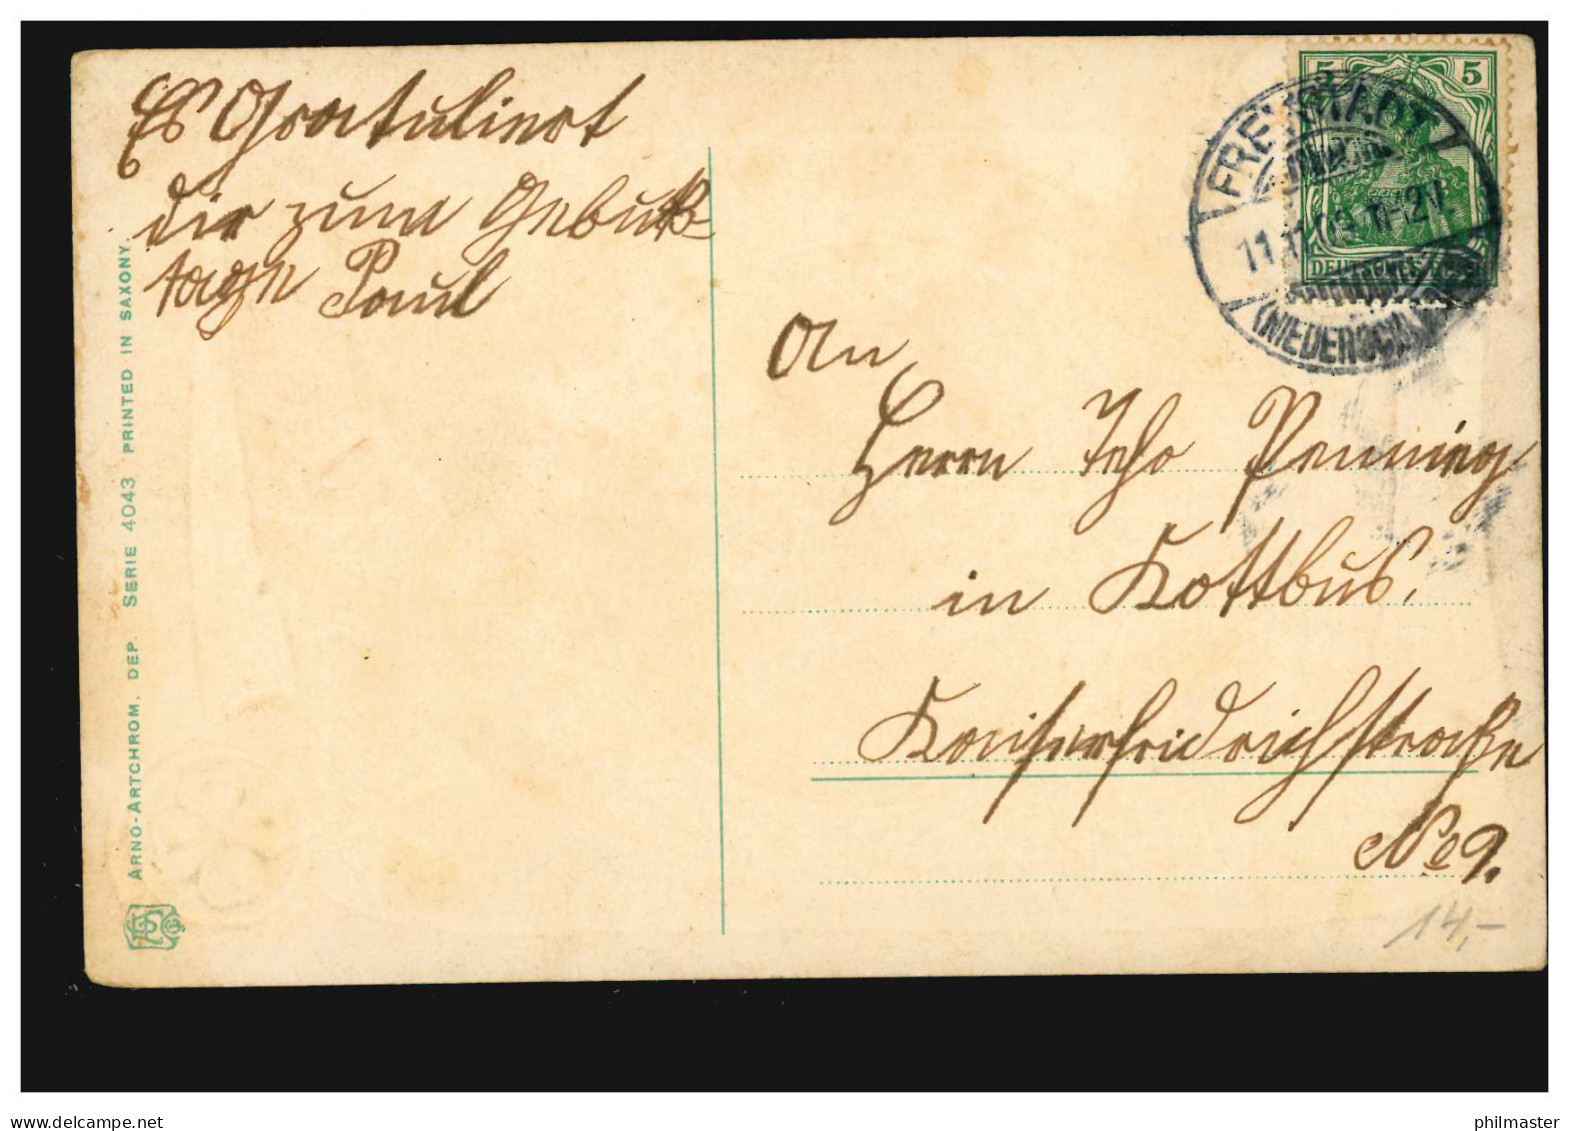 Es Gratuliert
dir zum Geburts-
tage Paul
ARNO-ARTCHROM. DEP. SERIE 4043 PRINTED IN SAXONY.
5 5
FREYSTADT
11.11.09. 11-12V
(NIEDERSCHL
An
Herrn
Penning
in Kottbus.
Kaiserfridrichstraße
No 9.
14,-
delcampe.net
philmaster